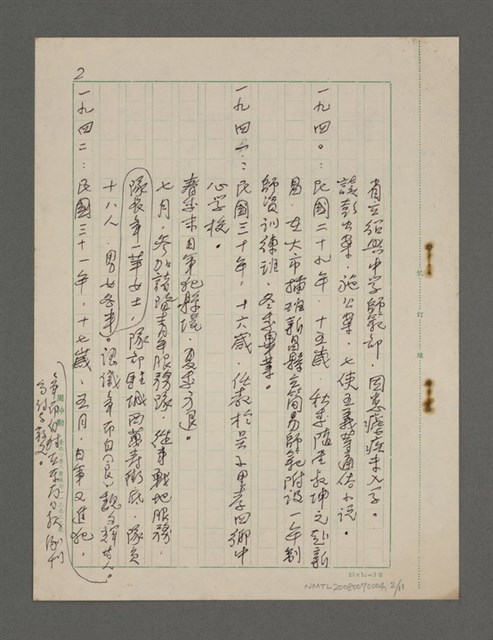 2
省立紹興中學師範部，因患瘧疾未入學。
讀彭公案、施公案、七俠五義等通俗小說。
一九四〇：民國二十九年，十五歲，秋季隨堂叔坤元赴新
昌，在大市插班新昌縣立簡易師範附設一年制
師資訓練班，冬季畢業。
一九四一：民國三十年，十六歲，任教於 四鄉中
心學校。
春季末日軍犯縣境，夏季方退。
七月，參加諸暨青年服務隊，從事戰地服務，
隊長 一華女士，隊部駐城西萬壽街底，隊員
十八人，男女各半。認識年
一九四二：民國三十一年，十七歲，五月，日軍又進犯，
裝訂線
25×12=300
NMTL20080070004, 2/11